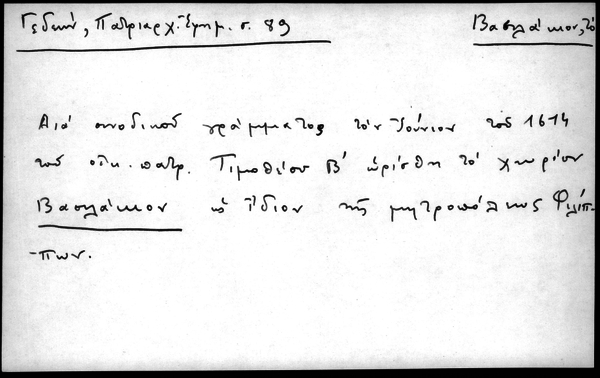 Γεδεών, Πατριαρχ. Ἐφημ. σ. 89
Βασιλάκιον, τὸ
Διὰ συνοδικοῦ γράμματος τὸν Ἰούνιον τοῦ 1614
τοῦ οἰκ. πατρ. Τιμοθέου Β' ὡρίσθη τὸ χωρίον
Βασιλάκιον ὡς ἴδιον τῆς μητροπόλεως Φιλίπ-
-πων.